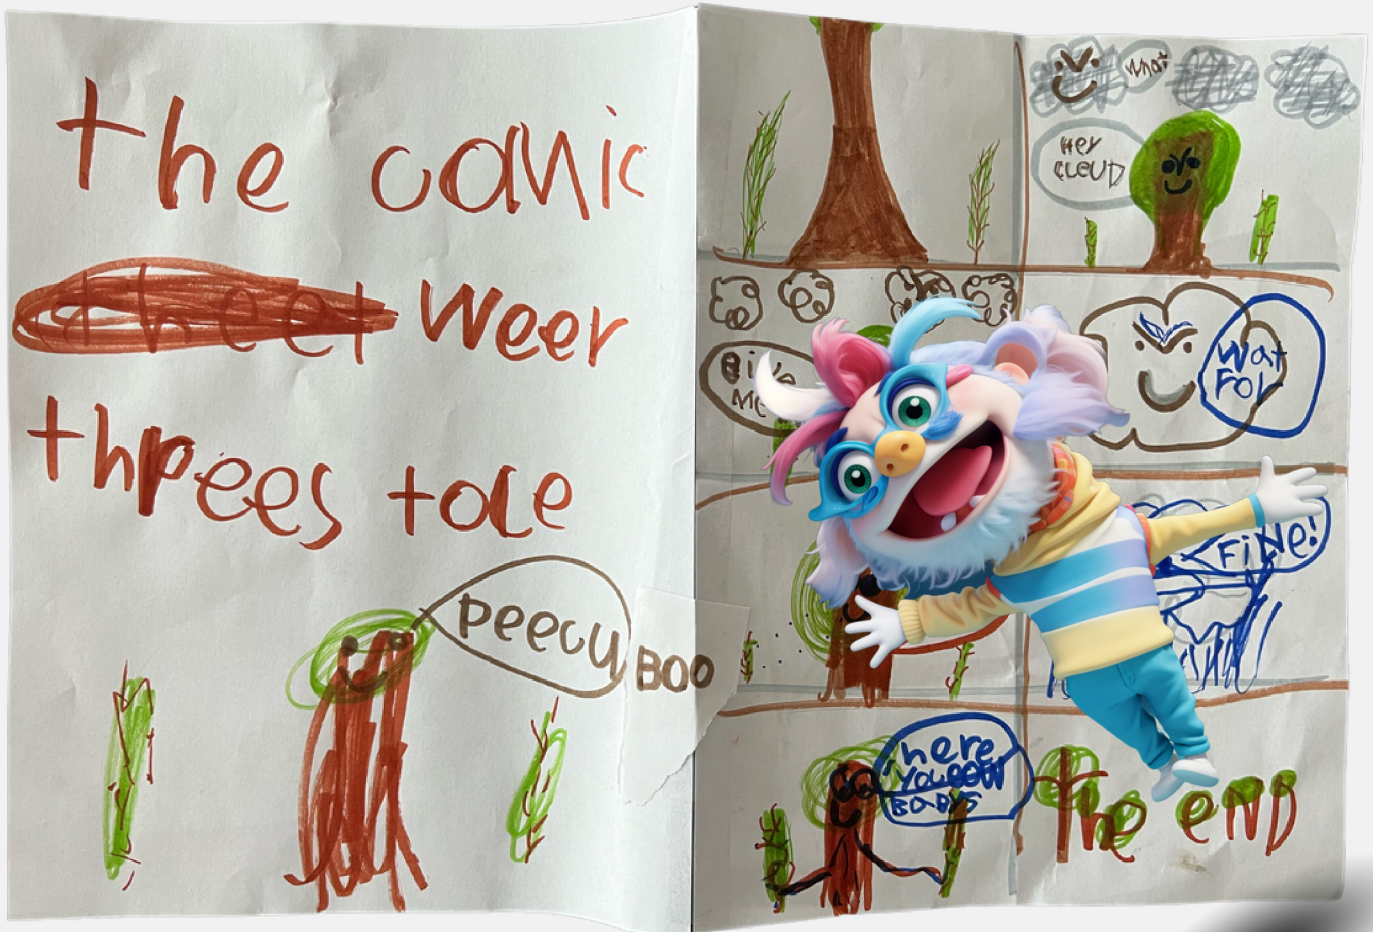 the comic
theet weer
threes tole
peecy
BOO
what
HEY
CLEUD
GIVE
ME
Wat
FOr
FiNe!
here
BODYS
the eND